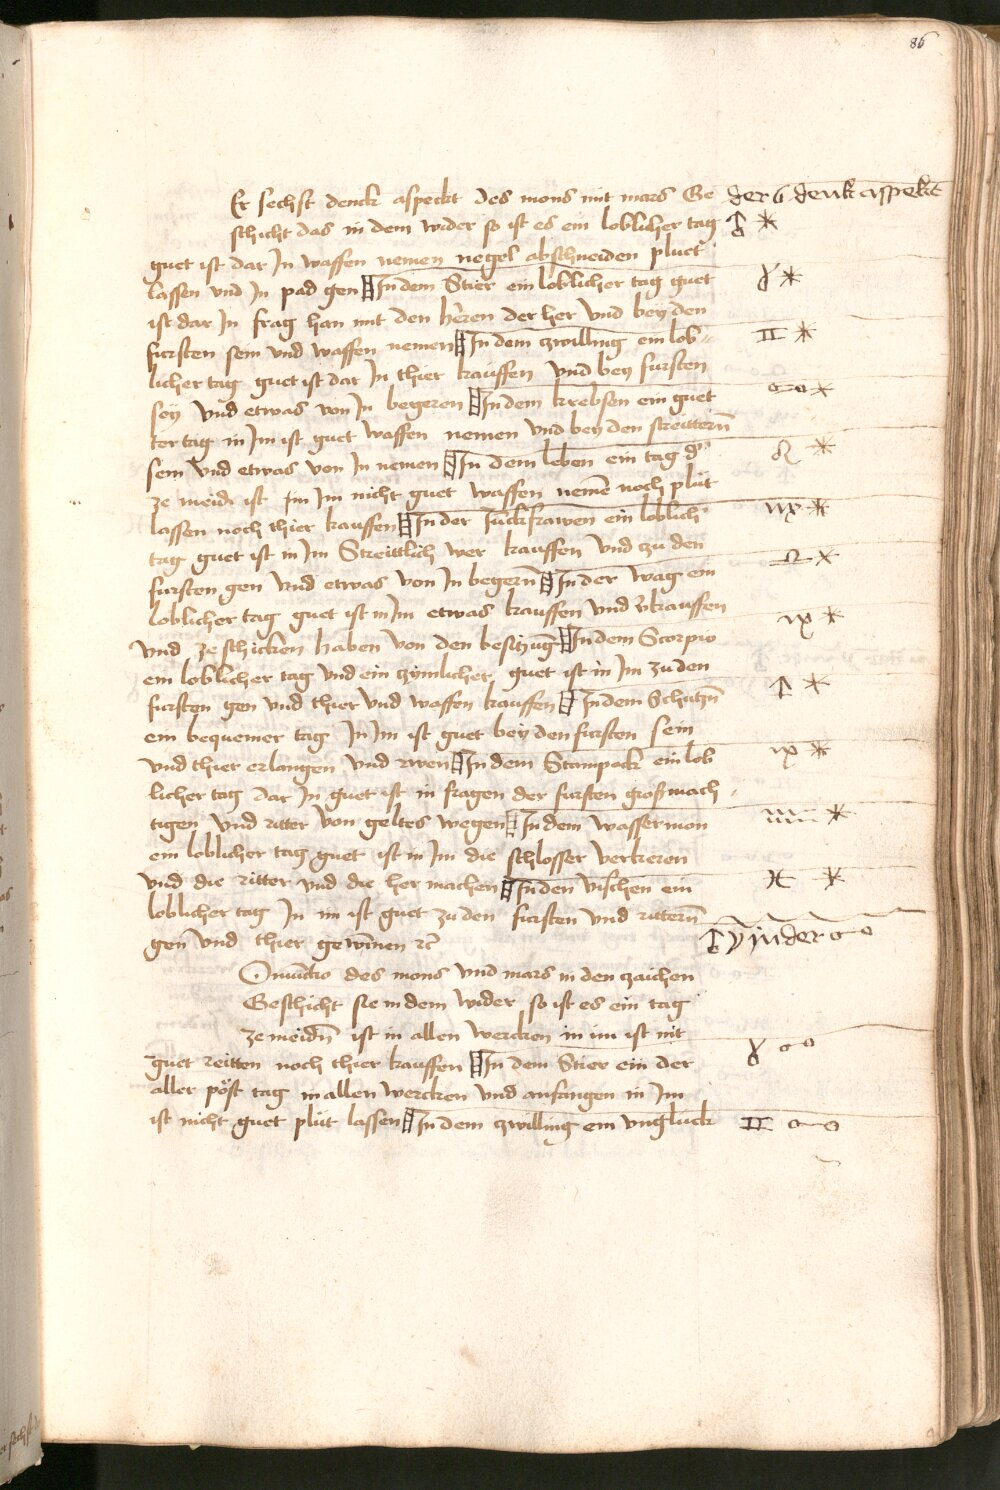 86
Er sechst denck aspeckt des mons mit mars Ge
der 6 denk asspekt
schicht das in dem wider so ist es ein loblicher tag
guet ist dar In waffen nemen negel abschneiden pluet
lassen vnd In pad gen In dem Stier ein loblicher tag guet
♉ *
ist dar In frag han mit den heren der her vnd bey den
fursten sein vnd waffen nemen In dem zwilling ein lob
♊ *
licher tag guet ist dar In thier kauffen vnd bey fursten
sey vnd etwas von In begeren In dem krebsen ein guet
♋ *
ter tag in Im ist guet waffen nemen vnd bey den streittern̄
sein vnd etwas von In nemen In dem leben ein tag
♌ *
ze meidn̄ ist Im Im nicht guet waffen nemē noch plüt
lassen noch thier kauffen In der Junckfrawen ein loblich
♍ *
tag guet ist in Im Streittlich wer kauffen vnd zu den
fursten gen vnd etwas von In begern̄ In der wag ein
♎ *
loblicher tag guet ist in Im etwas kauffen vnd v̄kauffen
vnd ze schicken haben von den besitzūg In dem Scorpio
♏ *
ein loblicher tag vnd ein zymlicher guet ist in Im zu den
fursten gen vnd thier vnd waffen kauffen In dem Schutzn̄
♐ *
ein bequemer tag In Im ist guet bey den fursten sein
vnd thier erlangen vnd In dem Stainpock ein lob
♑ *
licher tag dar In guet ist in fragen der fursten großmach
tigen vnd ritter von geltes wegen In dem wasserman
♒ *
ein loblicher tag guet ist in Im die schlosser verkeren
vnd die ritter vnd die her machen In den vischen ein
♓ *
loblicher tag In im ist guet zu den fursten vnd rittern̄
gen vnd thier gewīnen rc̄
in der ☍
des mons vnd mars in den zaichen
Geschicht sie in dem wider so ist es ein tag
ze meidn̄ ist in allen wercken in im ist nit
guet reitten noch thier kauffen In dem Stier ein der
♉ ☍
aller pöst tag in allen wercken vnd anfangen in Im
ist nicht guet plüt lassen In dem zwilling ein vngluck
♊ ☍